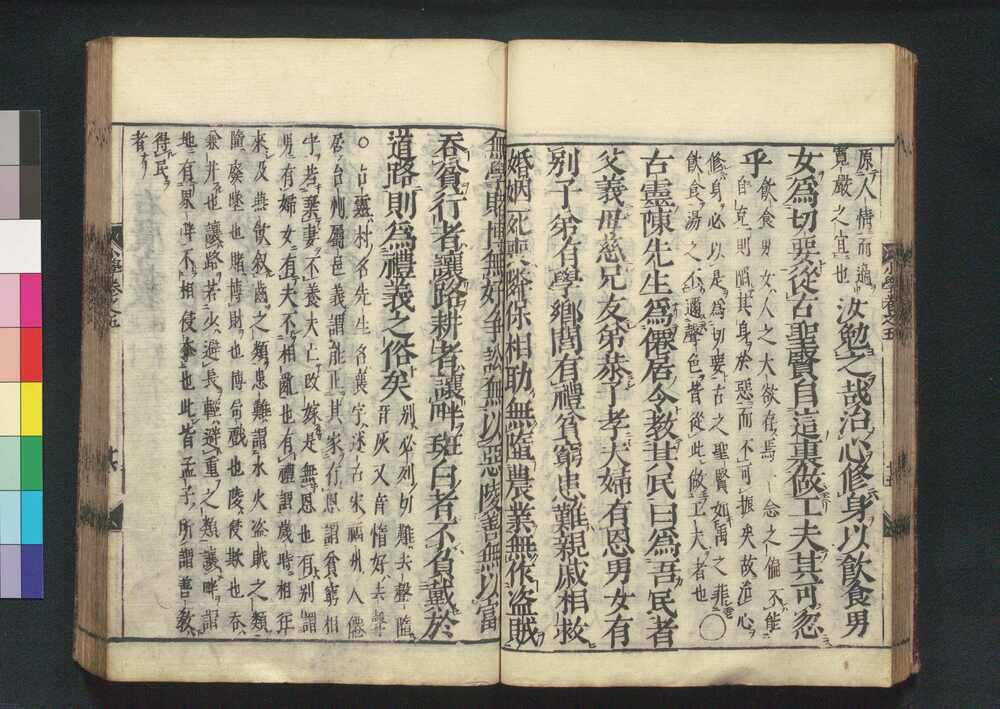 原人情而適
寛嚴之宜也
汝勉之哉治心修身以飲食男
女爲切要從古聖賢自這裏做工夫其可忽
乎
飲食男女人之大欲存焉一念之偏不能
自克則陷其身於惡而不可振矣故治心
修身必以是爲切要古之聖賢如禹之菲
飲食湯之不邇聲色皆從此做工夫者也
〇
古靈陳先生爲僊居令教其民曰爲吾民者
父義母慈兄友弟恭子孝夫婦有恩男女有
別子弟有學鄉閭有禮貧窮患難親戚相救
婚姻死喪鄰保相助無墮農業無作盜賊
無學賭博無好爭訟無以惡陵善無以富
吞貧行者讓路耕者讓畔班白者不負戴於
道路則爲禮義之俗矣
別必列切難去聲墮
許灰又音惰好去聲
〇古靈村名先生名襄字述古宋福州人僊
居台州屬邑義謂能正其家行恩謂貧窮相
守若棄妻不養夫亡改嫁是無恩也有別謂
男有婦女有夫不相亂也有禮謂歲時相往
來及燕飲敘齒之類患難謂水火盜賊之類
墮廢墜也賭博財也博局戲也陵侵欺也吞
兼并也讓路若少避長輕避重之類讓畔謂
地有界畔不相侵奪也此皆孟子所謂善教
得民
者